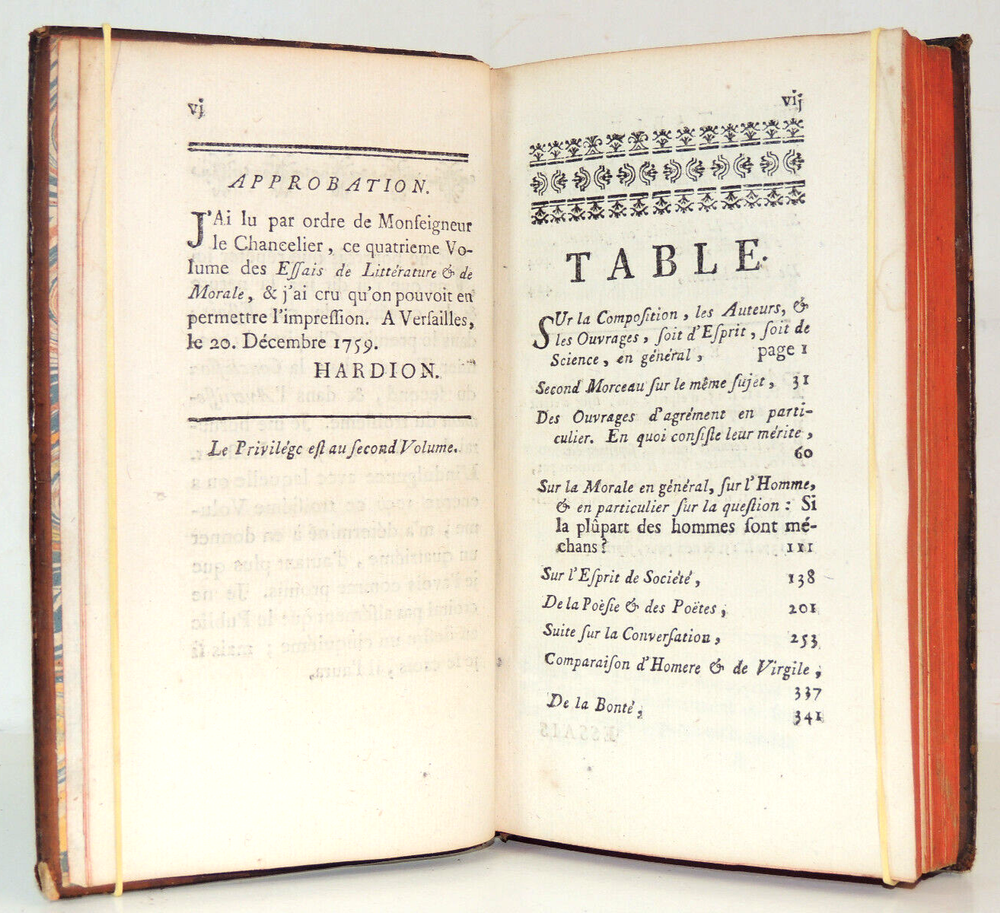 vj
APPROBATION.
J'Ai lu par ordre de Monſeigneur
le Chancelier, ce quatrieme Vo-
lume des Eſſais de Littérature & de
Morale, & j'ai cru qu'on pouvoit en
permettre l'impreſſion. A Verſailles,
le 20. Décembre 1759.
HARDION.
Le Privilége eſt au ſecond Volume.
vij
TABLE.
SUr la Compoſition, les Auteurs, &
les Ouvrages, ſoit d'Eſprit, ſoit de
Science, en général, page 1
Second Morceau ſur le même ſujet, 31
Des Ouvrages d'agrément en parti-
culier. En quoi conſiſte leur mérite,
60
Sur la Morale en général, ſur l'Homme,
& en particulier ſur la queſtion : Si
la plûpart des hommes ſont mé-
chans? 111
Sur l'Eſprit de Société, 138
De la Poèſie & des Poëtes, 201
Suite ſur la Converſation, 253
Comparaiſon d'Homere & de Virgile,
337
De la Bonté, 341